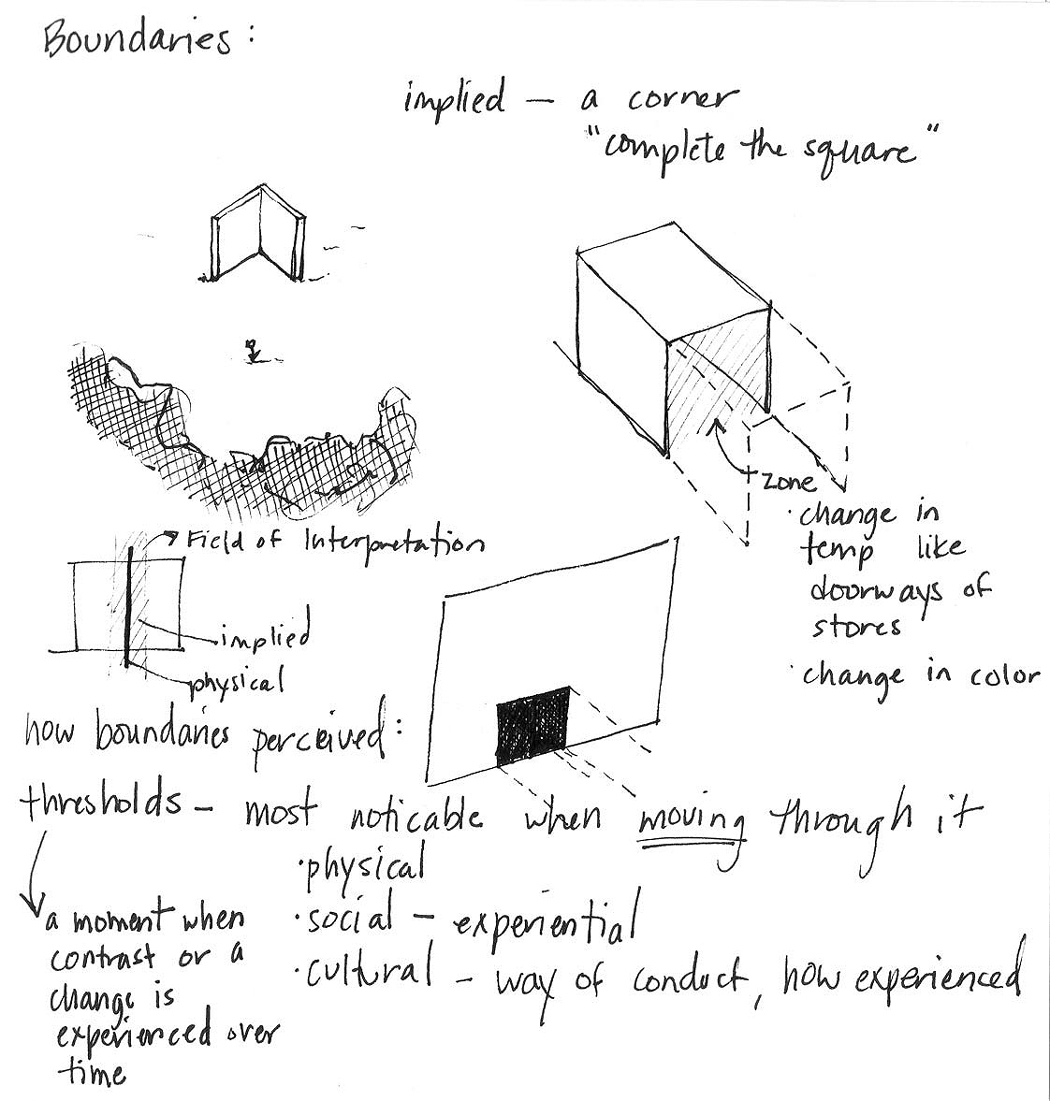 Boundaries:
implied — a corner
"complete the square"
zone
· change in
temp like
doorways of
stores
· change in color
Field of Interpretation
implied
physical
how boundaries perceived:
thresholds – most noticable when moving through it
· physical
· social – experiential
· cultural – way of conduct, how experienced
a moment when
contrast or a
change is
experienced over
time